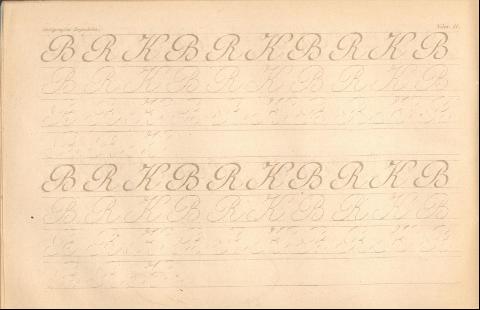 Núm. 11.
B R K B R K B R K B
B R K B R K B R K B
B R K B R K B R K B
B R K
B R K B R K B R K B
B R K B R K B R K B
B R K B R K B R K B
B R K